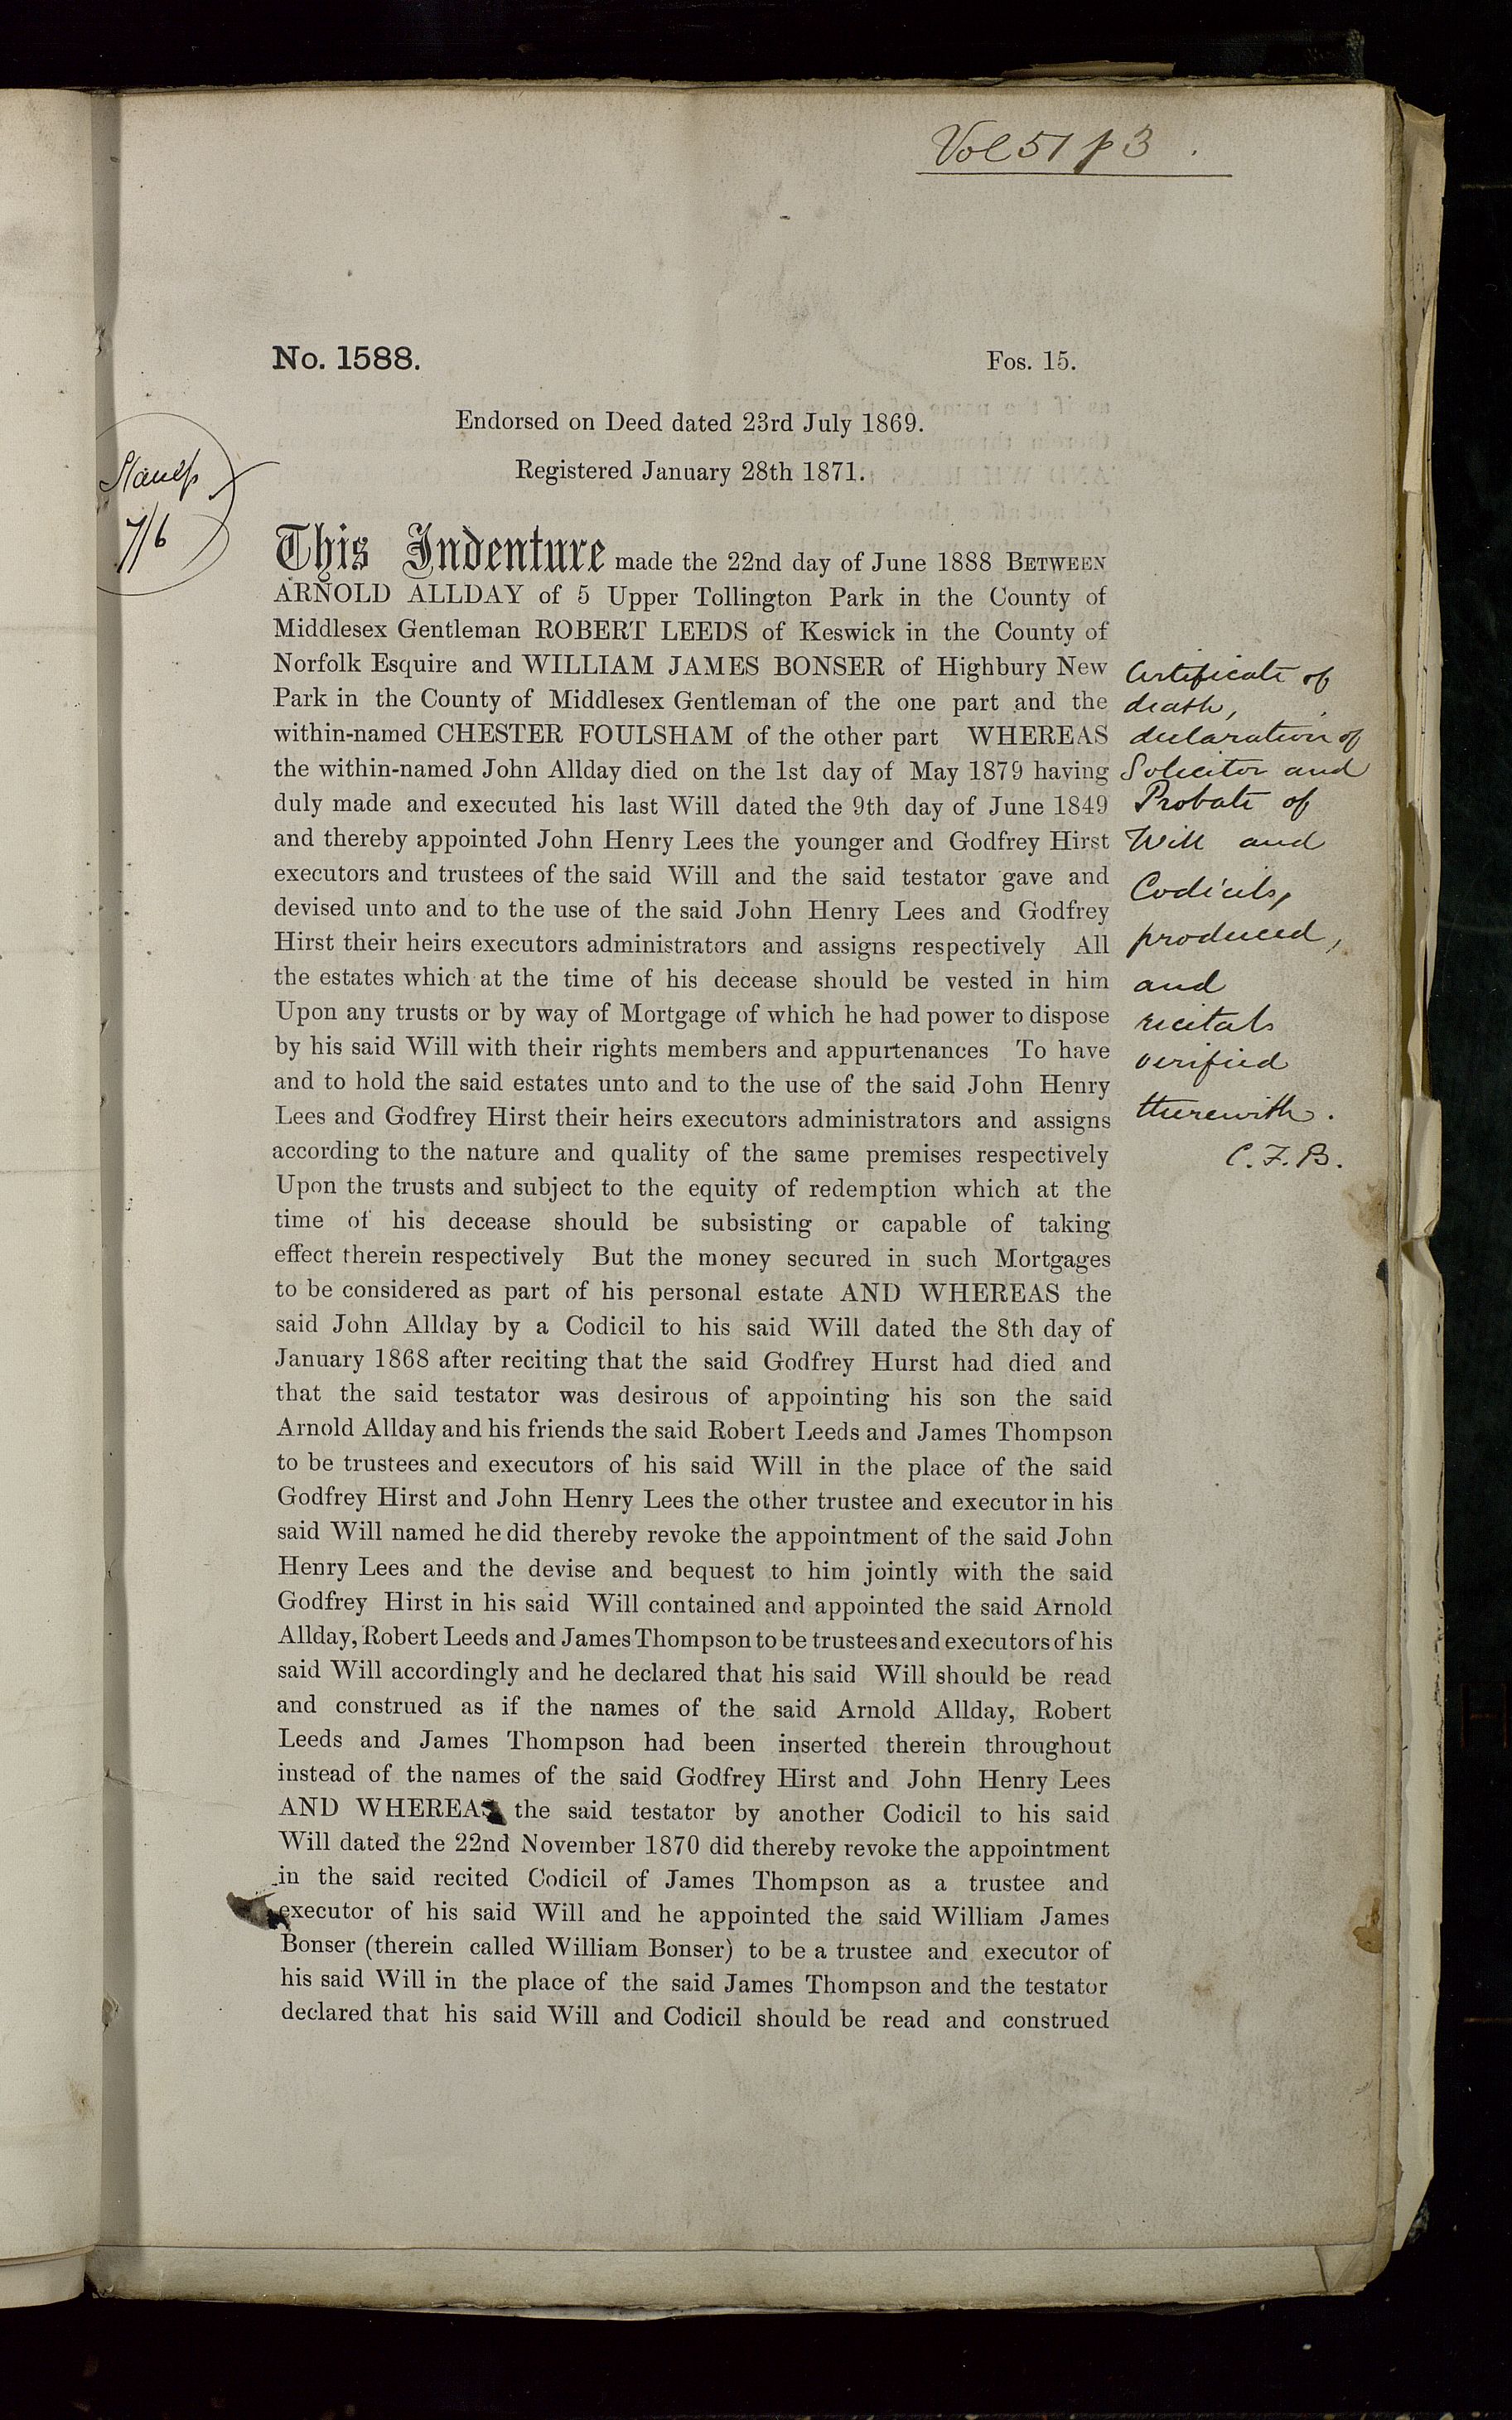 Vol 51 p 3.
No. 1588.
Fos. 15.
Endorsed on Deed dated 23rd July 1869.
Registered January 28th 1871.
Stamp
7/6
This Indenture made the 22nd day of June 1888 BETWEEN
ARNOLD ALLDAY of 5 Upper Tollington Park in the County of
Middlesex Gentleman ROBERT LEEDS of Keswick in the County of
Norfolk Esquire and WILLIAM JAMES BONSER of Highbury New
Park in the County of Middlesex Gentleman of the one part and the
within-named CHESTER FOULSHAM of the other part WHEREAS
the within-named John Allday died on the 1st day of May 1879 having
duly made and executed his last Will dated the 9th day of June 1849
and thereby appointed John Henry Lees the younger and Godfrey Hirst
executors and trustees of the said Will and the said testator gave and
devised unto and to the use of the said John Henry Lees and Godfrey
Hirst their heirs executors administrators and assigns respectively All
the estates which at the time of his decease should be vested in him
Upon any trusts or by way of Mortgage of which he had power to dispose
by his said Will with their rights members and appurtenances To have
and to hold the said estates unto and to the use of the said John Henry
Lees and Godfrey Hirst their heirs executors administrators and assigns
according to the nature and quality of the same premises respectively
Upon the trusts and subject to the equity of redemption which at the
time of his decease should be subsisting or capable of taking
effect therein respectively But the money secured in such Mortgages
to be considered as part of his personal estate AND WHEREAS the
said John Allday by a Codicil to his said Will dated the 8th day of
January 1868 after reciting that the said Godfrey Hurst had died and
that the said testator was desirous of appointing his son the said
Arnold Allday and his friends the said Robert Leeds and James Thompson
to be trustees and executors of his said Will in the place of the said
Godfrey Hirst and John Henry Lees the other trustee and executor in his
said Will named he did thereby revoke the appointment of the said John
Henry Lees and the devise and bequest to him jointly with the said
Godfrey Hirst in his said Will contained and appointed the said Arnold
Allday, Robert Leeds and James Thompson to be trustees and executors of his
said Will accordingly and he declared that his said Will should be read
and construed as if the names of the said Arnold Allday, Robert
Leeds and James Thompson had been inserted therein throughout
instead of the names of the said Godfrey Hirst and John Henry Lees
AND WHEREAS the said testator by another Codicil to his said
Will dated the 22nd November 1870 did thereby revoke the appointment
in the said recited Codicil of James Thompson as a trustee and
executor of his said Will and he appointed the said William James
Bonser (therein called William Bonser) to be a trustee and executor of
his said Will in the place of the said James Thompson and the testator
declared that his said Will and Codicil should be read and construed
Certificate of
death,
declaration of
Solicitor and
Probate of
Will and
Codicils,
produced,
and
recitals
verified
therewith.
C. F. B.